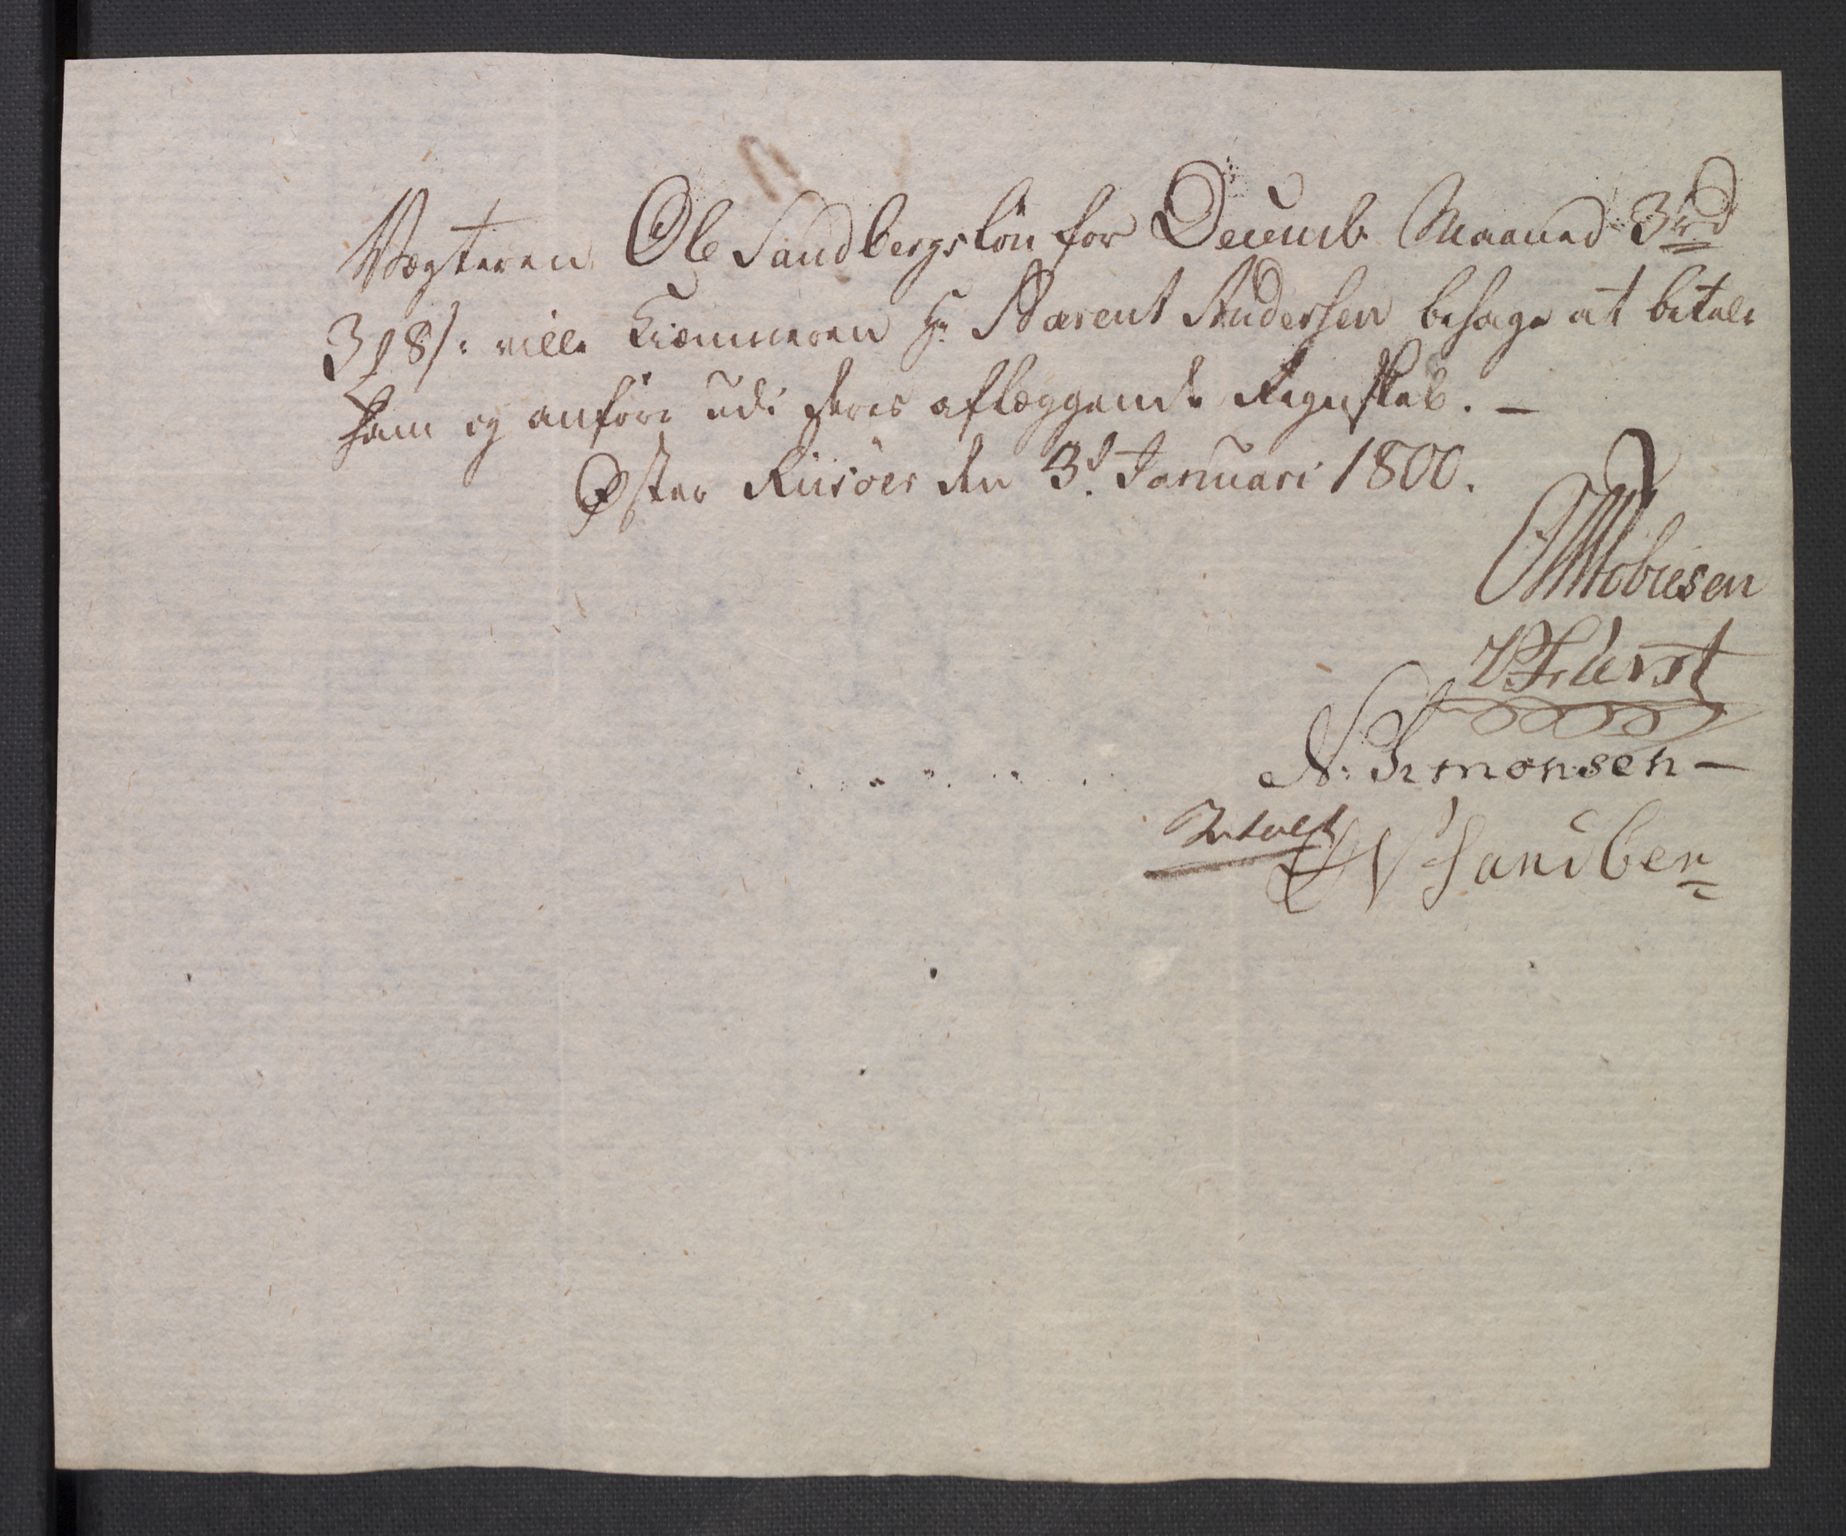 Vægteren Ole Sandbergs Løn for Decemb. Maaned 3rd
3 ß 8 /: ville Kiemneren Hr. Berent Andersen behage at betale
ham og anføre udi deres aflæggende Regnskab. —
Øster Riisøer den 3d. Januari 1800.
Mobiesen
P. Fürst
N. Simonsen —
Betalt
Sandber